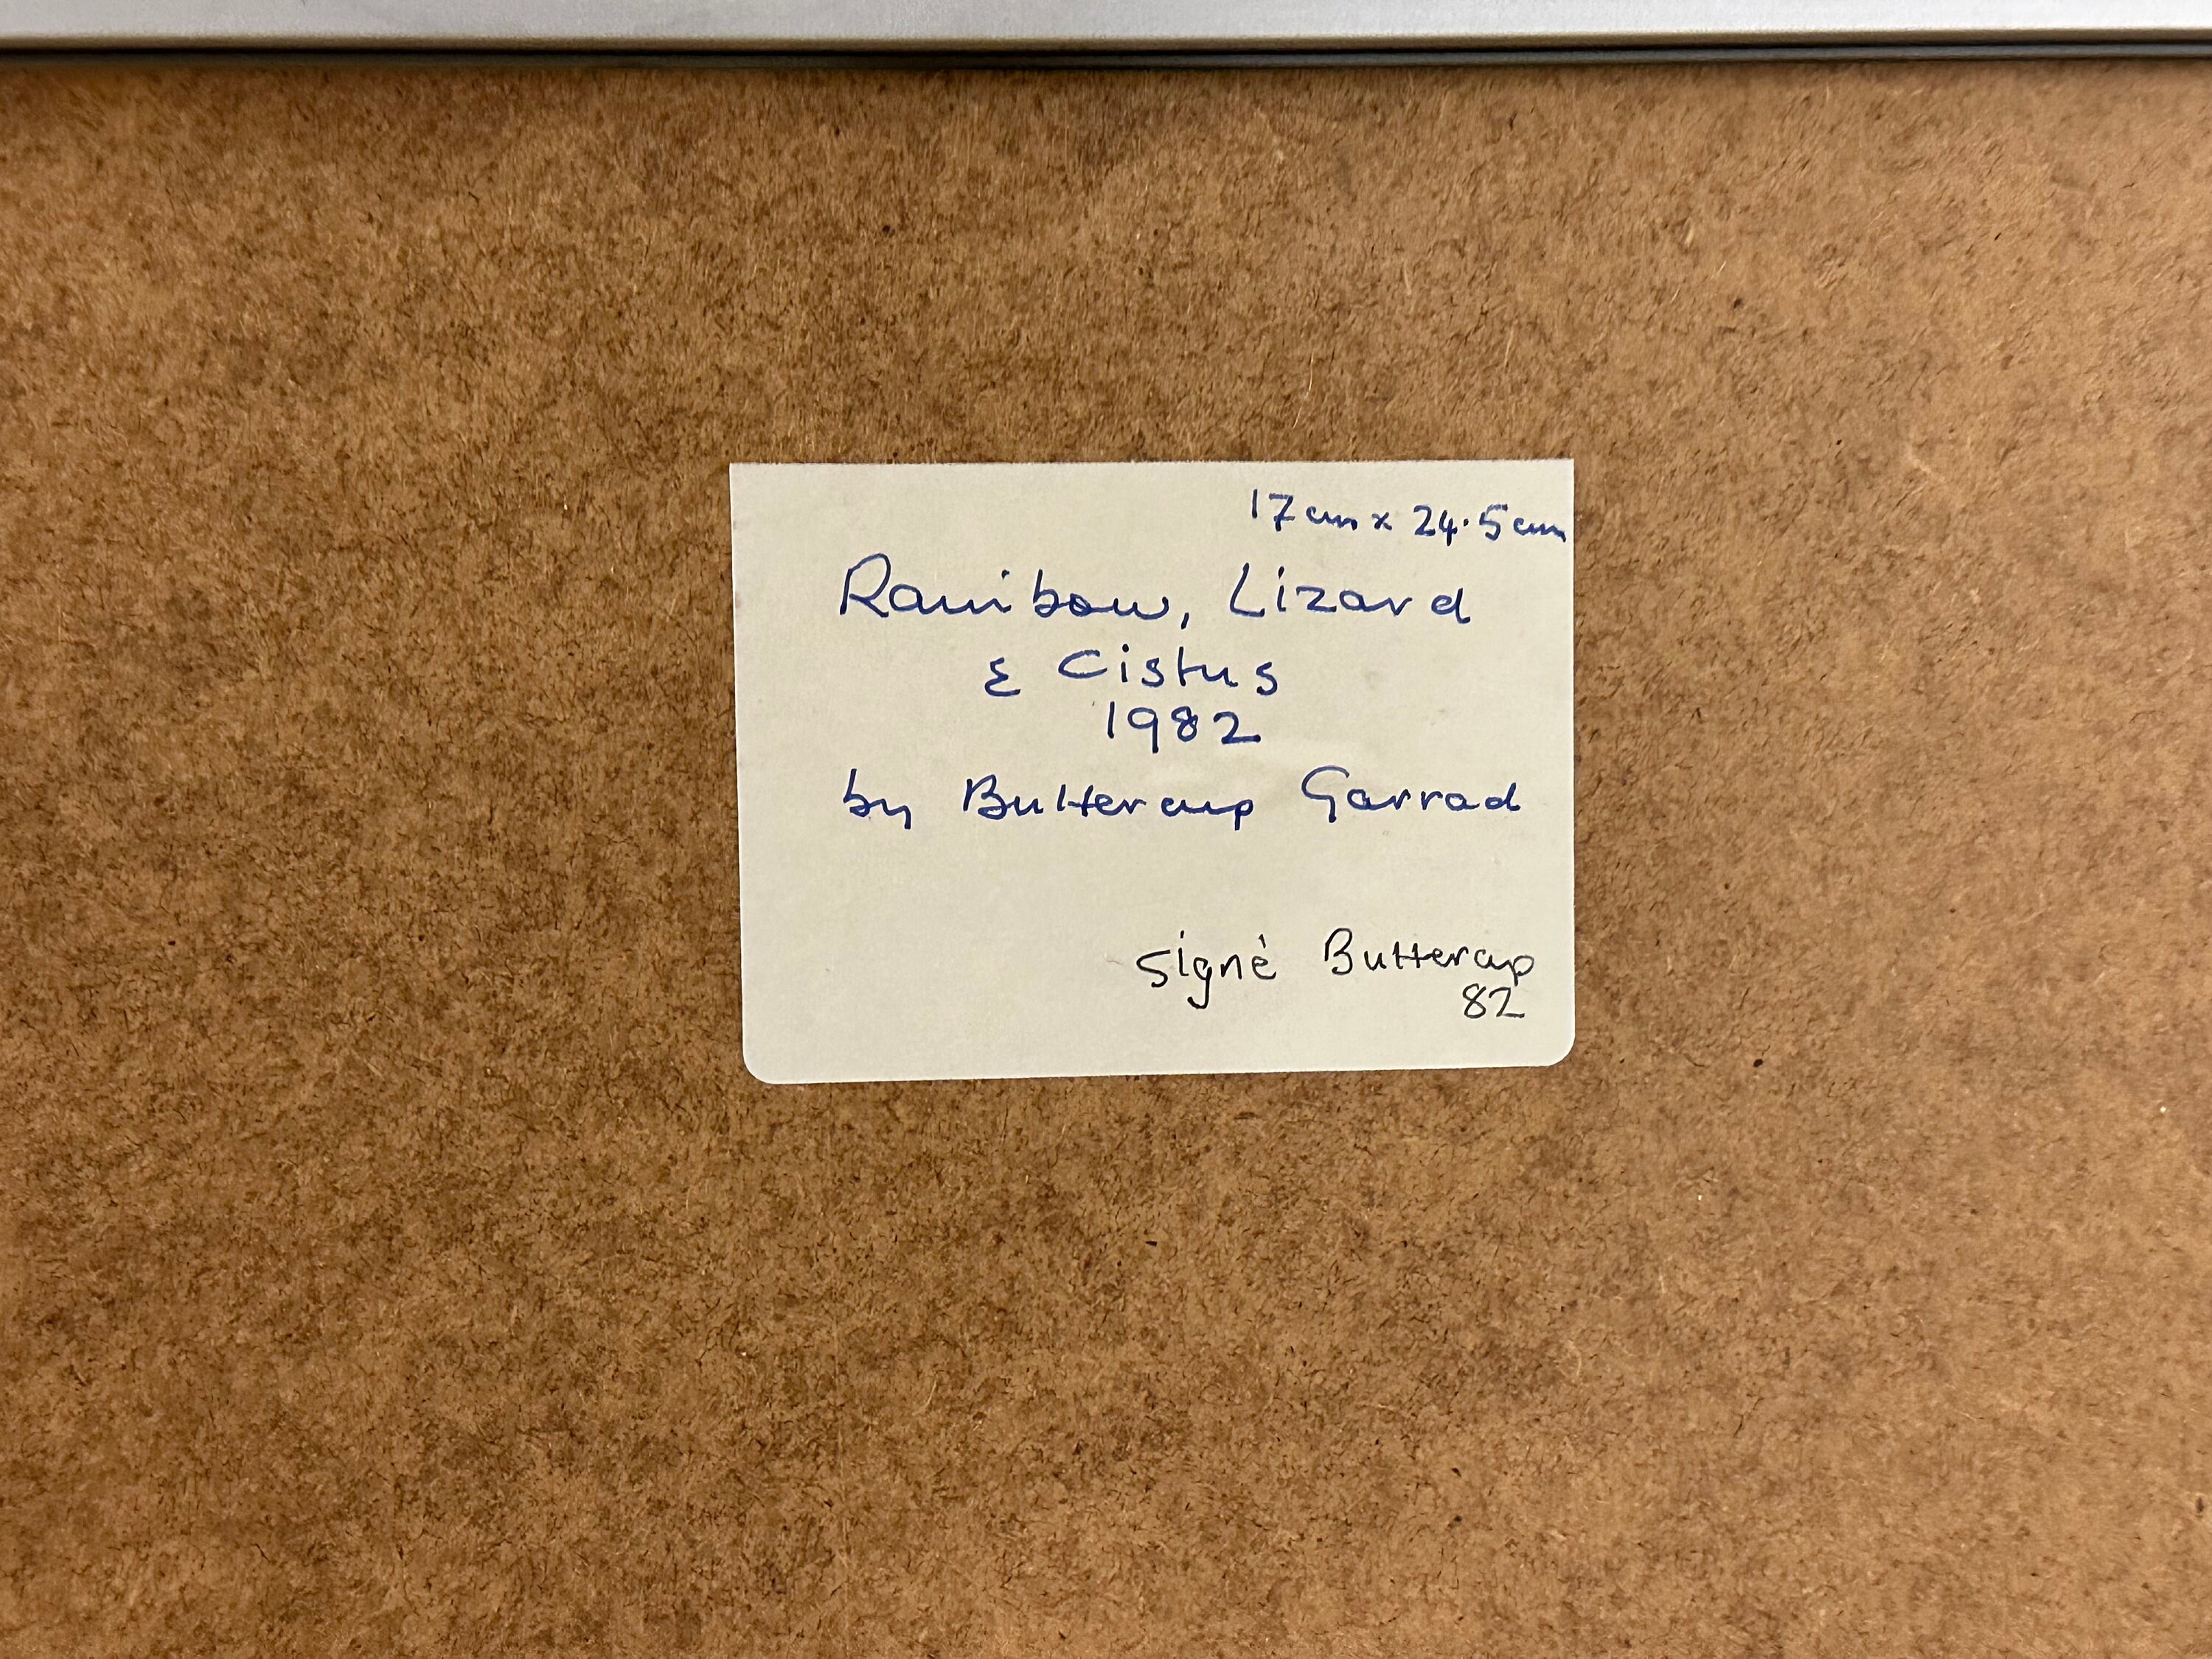 17cm x 24.5cm
Rainbow, Lizard
& Cistus
1982
by Buttercup Garrad
signé Buttercup
82